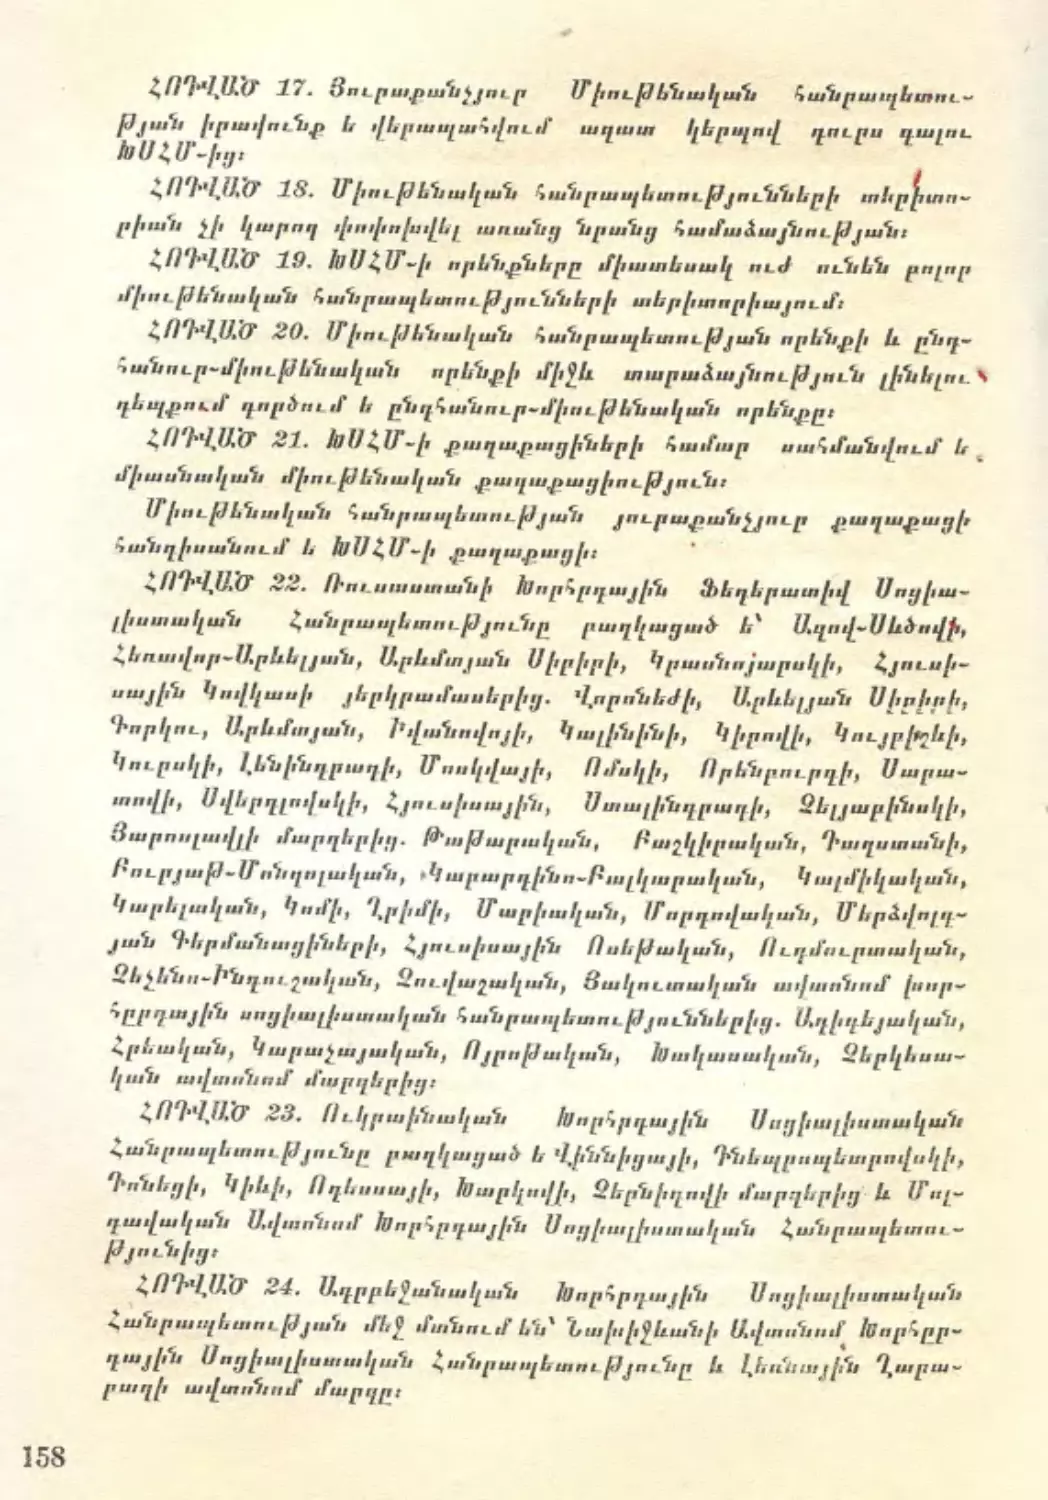 ՀՈԴՎԱԾ 17. Յուրաքանչյուր Միութենական հանրապետու-
թյան իրավունք ե վերապահվում ազատ կերպով դուրս գալու
ԽՍՀՄ-ից։
ՀՈԴՎԱԾ 18. Միութենական հանրապետությունների տերիտո-
րիան չի կարող փոփոխվել առանց նրանց համաձայնության։
ՀՈԴՎԱԾ 19. ԽՍՀՄ-ի որենքները միատեսակ ուժ ունեն բոլոր
միութենական հանրապետությունների տերիտորիայում։
ՀՈԴՎԱԾ 20. Միութենական հանրապետության որենքի և ընդ-
հանուր-միութենական որենքի միջև տարաձայնություն լինելու
դեպքում գործում ե ընդհանուր-միութենական որենքը։
ՀՈԴՎԱԾ 21. ԽՍՀՄ-ի քաղաքացիների համար սահմանվում ե
միասնական միութենական քաղաքացիություն։
Միութենական հանրապետության յուրաքանչյուր քաղաքացի
հանդիսանում ե ԽՍՀՄ-ի քաղաքացի։
ՀՈԴՎԱԾ 22. Ռուսաստանի Խորհրդային Ֆեդերատիվ Սոցիա-
լիստական Հանրապետությունը բաղկացած ե՝ Ազով-Սևծովի,
Հեռավոր-Արևելյան, Արևմտյան Սիբիրի, Կրասնոյարսկի, Հյուսի-
սային Կովկասի յերկրամասերից. Վորոնեժի, Արևելյան Սիբիրի,
Գորկու, Արևմտյան, Իվանովոյի, Կալինինի, Կիրովի, Կույբիշևի,
Կուրսկի, Լենինգրադի, Մոսկվայի, Ոմսկի, Որենբուրգի, Սարա-
տովի, Սվերդլովսկի, Հյուսիսային, Ստալինգրադի, Չելյաբինսկի,
Յարոսլավլի մարզերից. Թաթարական, Բաշկիրական, Դաղստանի,
Բուրյաթ-Մոնղոլական, Կաբարդինո-Բալկարական, Կալմիկական,
Կարելական, Կոմի, Ղրիմի, Մարիական, Մորդովական, Մերձվոլգ-
յան Գերմանացիների, Հյուսիսային Ոսեթական, Ուդմուրտական,
Չեչենո-Ինգուշական, Չուվաշական, Յակուտական ավտոնոմ խոր-
հըրդային սոցիալիստական հանրապետություններից. Ադիղեյական,
Հրեական, Կարաչայական, Ոյրոթական, Խակասական, Չերկեսա-
կան ավտոնոմ մարզերից։
ՀՈԴՎԱԾ 23. Ուկրաինական Խորհրդային Սոցիալիստական
Հանրապետությունը բաղկացած ե Վիննիցայի, Դնեպրոպետրովսկի,
Դոնեցի, Կիևի, Ոդեսսայի, Խարկովի, Չերնիգովի մարզերից և Մոլ-
դավական Ավտոնոմ Խորհրդային Սոցիալիստական Հանրապետու-
թյունից։
ՀՈԴՎԱԾ 24. Ադրբեջանական Խորհրդային Սոցիալիստական
Հանրապետության մեջ մտնում են՝ Նախիջևանի Ավտոնոմ Խորհըր-
դային Սոցիալիստական Հանրապետությունը և Լեռնային Ղարա-
բաղի ավտոնոմ մարզը։
158